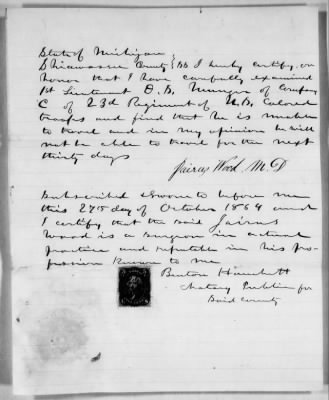 State of Michigan
Shiawassee County SS I hereby certify on
honor that I have carefully examined
1st Lieutenant O. B. Munger of Company
C of 23d Regiment of U.S. Colored
troops and find that he is unable
to travel and in my opinion he will
not be able to travel for the next
thirty days
Jairus Wood, M. D
Subscribed & Sworn to before me
this 27th day of October 1864 and
I certify that the said Jairus
Wood is a Surgeon in actual
practice and reputable in his pro-
fession known to me
Benton
Notary Public for
Said County